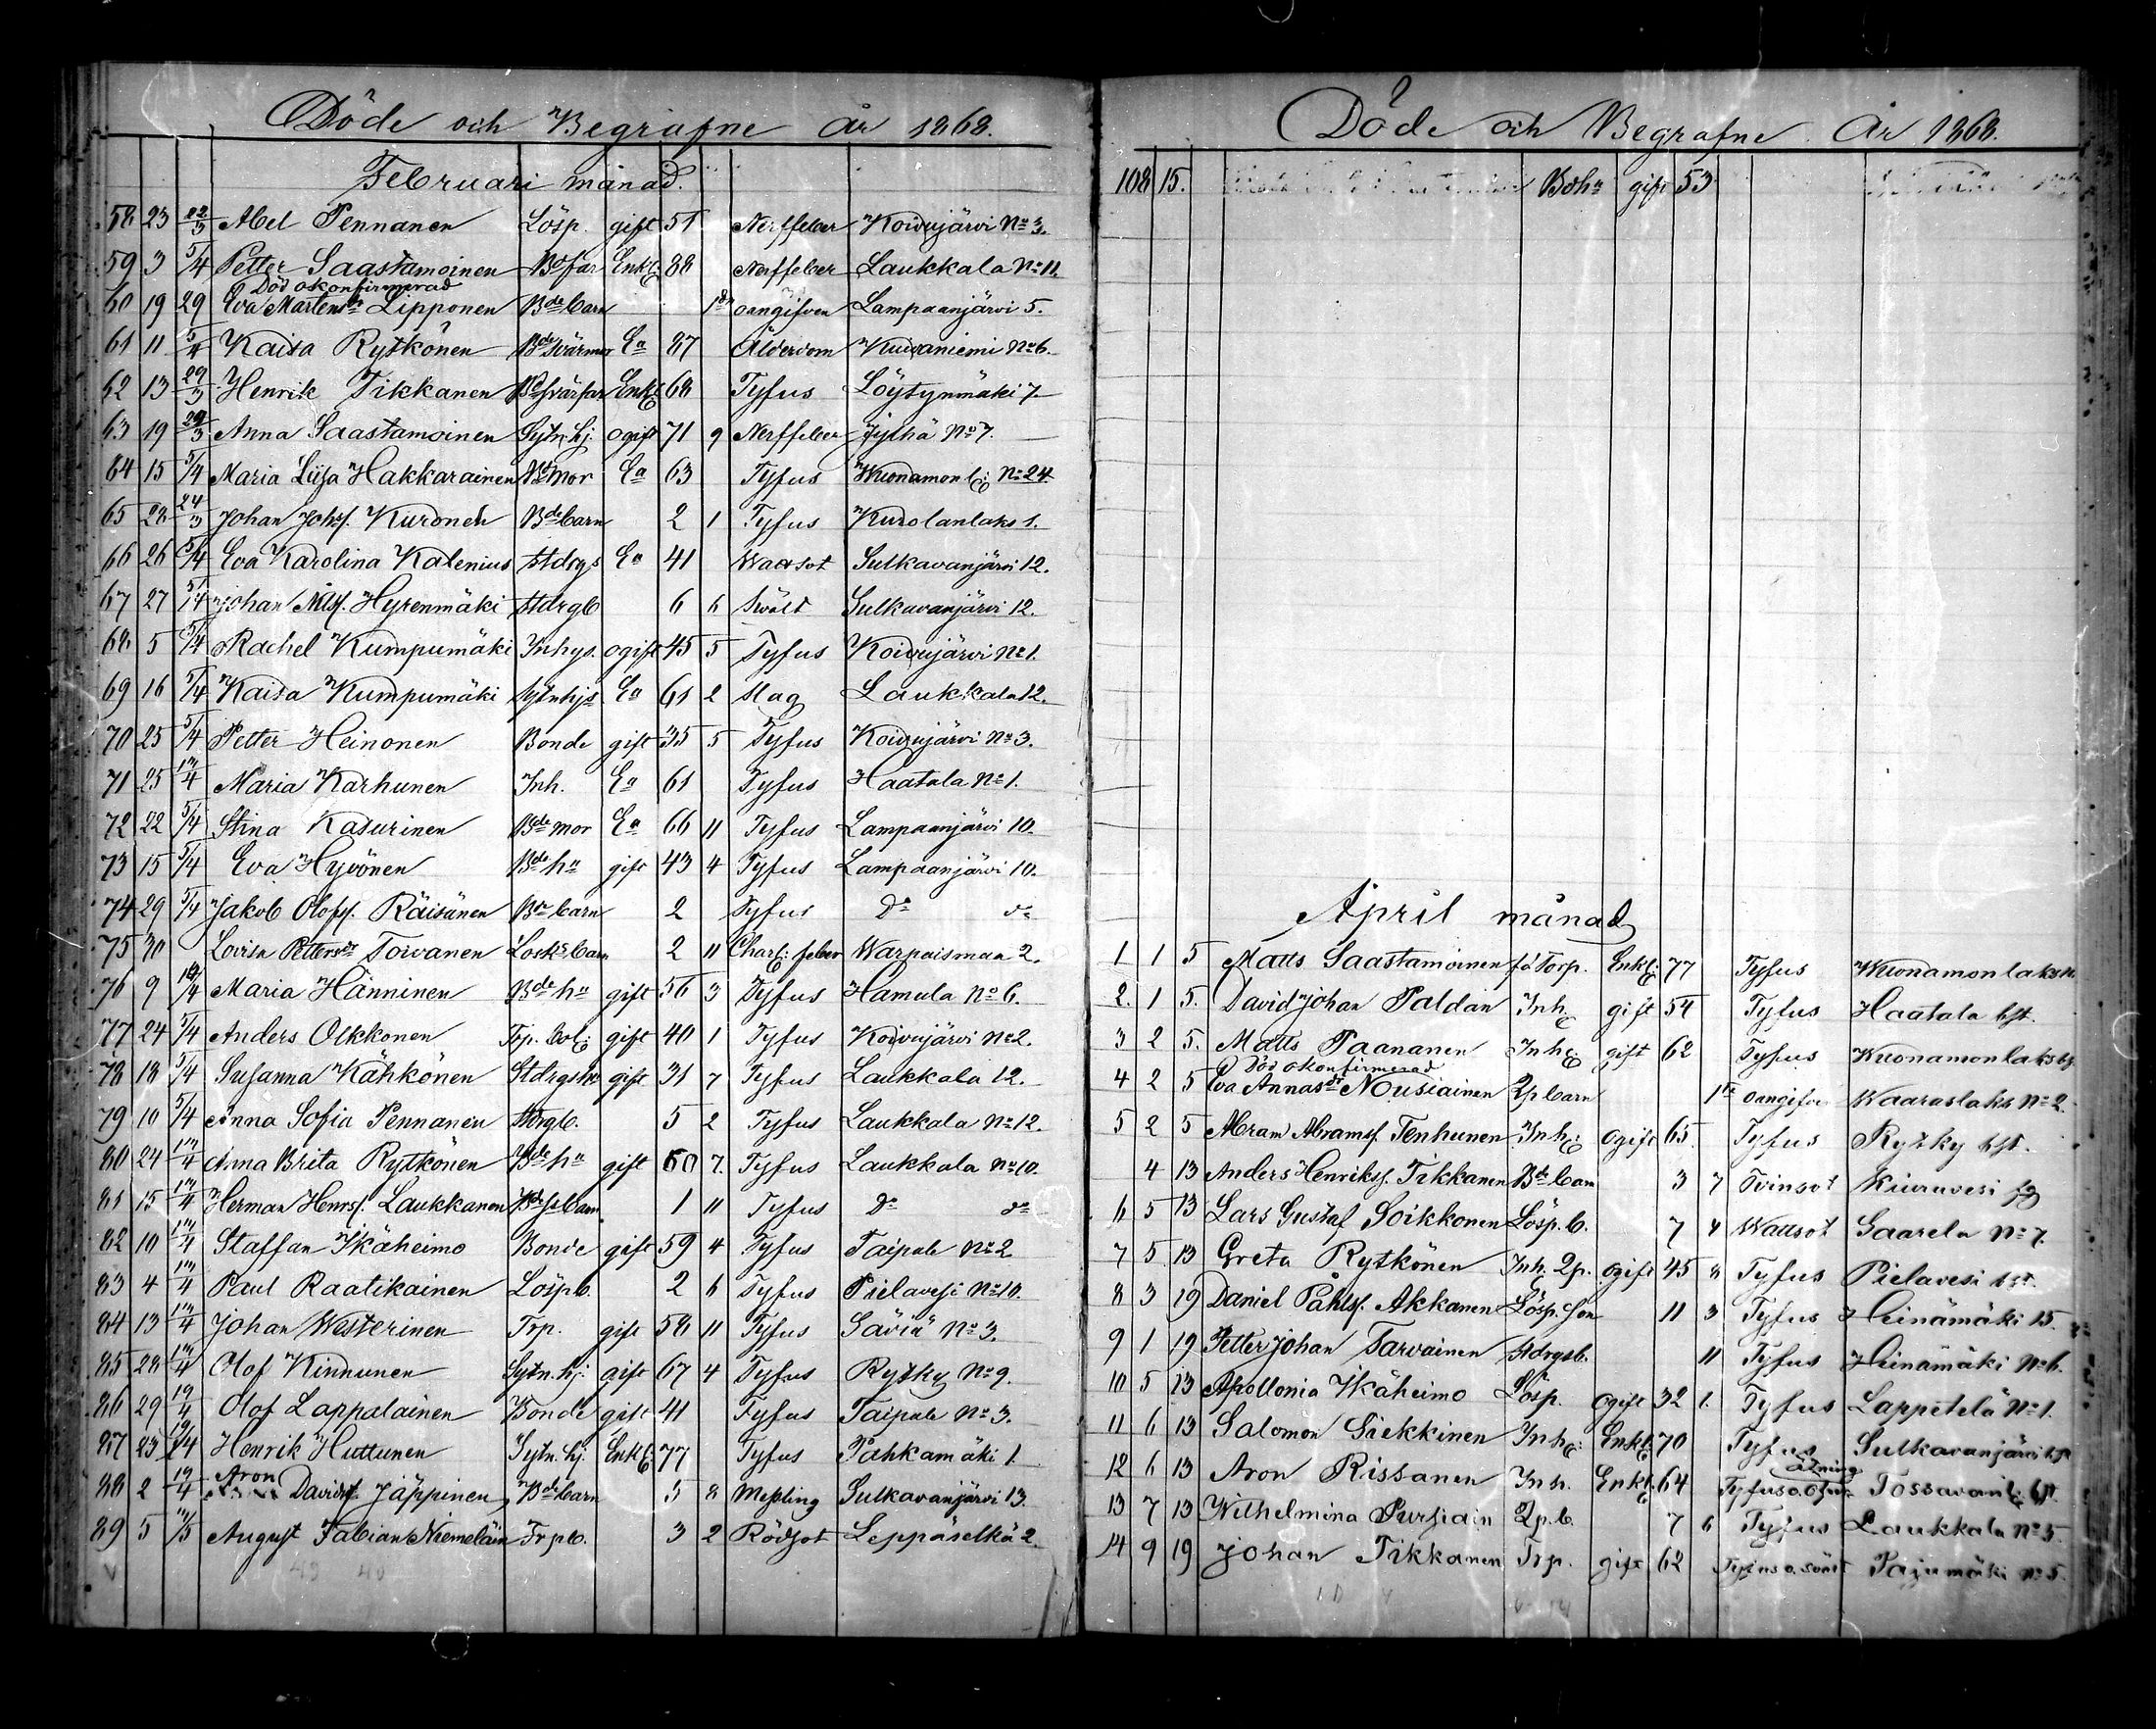 Döde och Begrafne År 1868.
Februari månad.
58 23 22/3 Abel Pennanen Lösp. gift 51 Nerffeber Koivujärvi No 3.
59 3 5/4 Petter Saastamoinen Bdfar Enkl. 88 Nerffeber Laukkala No 11.
Död okonfirmerad
60 19 29 Eva Mårtensdr Lipponen Bde barn 1 dn oangifven Lampaanjärvi 5.
61 11 5/4 Kaisa Rytkönen Bde svärmor Ea 87 Ålderdom Kuivaniemi No 6.
62 13 29/3 Henrik Tikkanen Bd svärfar Enkl. 68 Tyfus Löytynmäki 7
63 19 29/3 Anna Saastamoinen Sytn. hj. ogift 71 9 Nerffeber Jylhä No 7.
64 15 5/4 Maria Liisa Hakkarainen Bd mor Ea 63 Tyfus Wuonamonl. No 24
65 28 24/3 Johan Johs. Kuronen Bde barn 2 1 Tyfus Kurolanlaks 1.
66 26 5/4 Eva Karolina Kalenius Stdrgs Ea 41 Wattsot Sulkavanjärvi 12.
67 27 5/4 Johan Nilss. Hyrenmäki Stdrgb 6 6 Swält Sulkavanjärvi 12.
68 5 5/4 Rachel Kumpumäki Inhys. ogift 45 5 Tyfus Koivujärvi No 1.
69 16 5/4 Kaisa Kumpumäki Sytnhjs Ea 61 2 Slag Laukkala 12.
70 25 5/4 Petter Heinonen Bonde gift 35 5 Tyfus Koivujärvi No 3.
71 25 13/4 Maria Karhunen Inh. Ea 61 Tyfus Haatala No 1.
72 22 5/4 Stina Kasurinen Bde mor Ea 66 11 Tyfus Lampaanjärvi 10.
73 15 5/4 Eva Hyvönen Bde hu gift 43 4 Tyfus Lampaanjärvi 10.
74 29 5/4 Jakob Olofs. Räisänen Bde barn 2 Tyfus do do
75 30 Lovisa Pettersdr Toivanen Losk. barn 2 11 Charl: feber Warpaismaa 2.
76 9 19/4 Maria Hänninen Bde hu gift 56 3 Tyfus Hamula No 6.
77 24 5/4 Anders Olkkonen Trp. bol. gift 40 1 Tyfus Koivujärvi No 2.
78 18 5/4 Susanna Kähkönen Stdrgshu gift 31 7 Tyfus Laukkala 12.
79 10 5/4 Anna Sofia Pennanen Stdrgb. 5 2 Tyfus Laukkala No 12.
80 24 13/4 Anna Brita Rytkönen Bde hu gift 60 7. Tyfus Laukkala No 10.
81 15 13/4 Herman Henrs. Laukkanen 1 11 Tyfus do do
82 10 13/4 Staffan Ikäheimo Bonde gift 59 4 Tyfus Taipale No 2
83 4 13/4 Paul Raatikainen Lösp b. 2 6 Tyfus Pielavesi No 10.
84 13 13/4 Johan Westerinen Trp. gift 58 11 Tyfus Säviä No 3.
85 28 13/4 Olof Kinnunen Sytn. hj. gift 67 4 Tyfus Rytky No 9.
86 29 19/4 Olof Lappalainen Bonde gift 41 Tyfus Taipale No 3.
87 23 19/4 Henrik Huttunen Sytn. hj. Enkl. 77 Tyfus Pahkamäki 1
88 2 19/4 Aron Davids. Jäppinen Bde barn 5 8 Messling Sulkavanjärvi 13.
89 5 August Fabian Niemeläin Trp b. 3 2 Rödsot Leppäselkä 2.
Döde och Begrafne År 1868.
108 15. Bdhu gift 53
April månad
1 1 5 Matts Saastamoinen Torp. Enkl: 77 Tyfus Wuonamonlaks
2. 1 5. David Johan Paldan Inh. gift 54 Tyfus Haatala bst.
3 2 5. Matts Paananen Inh. gift 62 Tyfus Wuonamonlaks
Död okonfirmerad
4 2 5 Eva Annasdr Nousiainen Lp barn oangifv Waaraslaks No 2
5 2 5 Abram Abramss. Tenhunen Inh. ogift 65. Tyfus Rytky bst.
4 13 Anders Henrikss. Tikkanen Bde barn 3 7 Tvinsot Kiuruvesi
6 5 13 Lars Gustaf Soikkonen Lösp. b. 7 4 Wattsot Saarela No 7.
7 5 13 Greta Rytkönen Inh. Lp. ogift 45 8 Tyfus Pielavesi bst.
8 3 19 Daniel Påhls. Akkanen Lösp. son 11 3 Tyfus Heinämäki 15.
9 1 19 Petter Johan Tarvainen Stdrgsb. 11 Tyfus Heinämäki No 6.
10 5 13 Apollonia Ikäheimo Lösp. ogift 32 1. Tyfus Lappetelä No 1.
11 6 13 Salomon Siekkinen Inh: Enkl. 70 Tyfus Sulkavanjärvi
12 6 13 Aron Rissanen Inh. Enkl. 64 Tyfus Tossavanl. bst.
13 7 13 Wilhelmina Pursiain Lp. b. 7 6 Tyfus Laukkala No 5
14 9 19 Johan Tikkanen Trp. gift 62 Tyfus o. svält Pajumäki No 5.